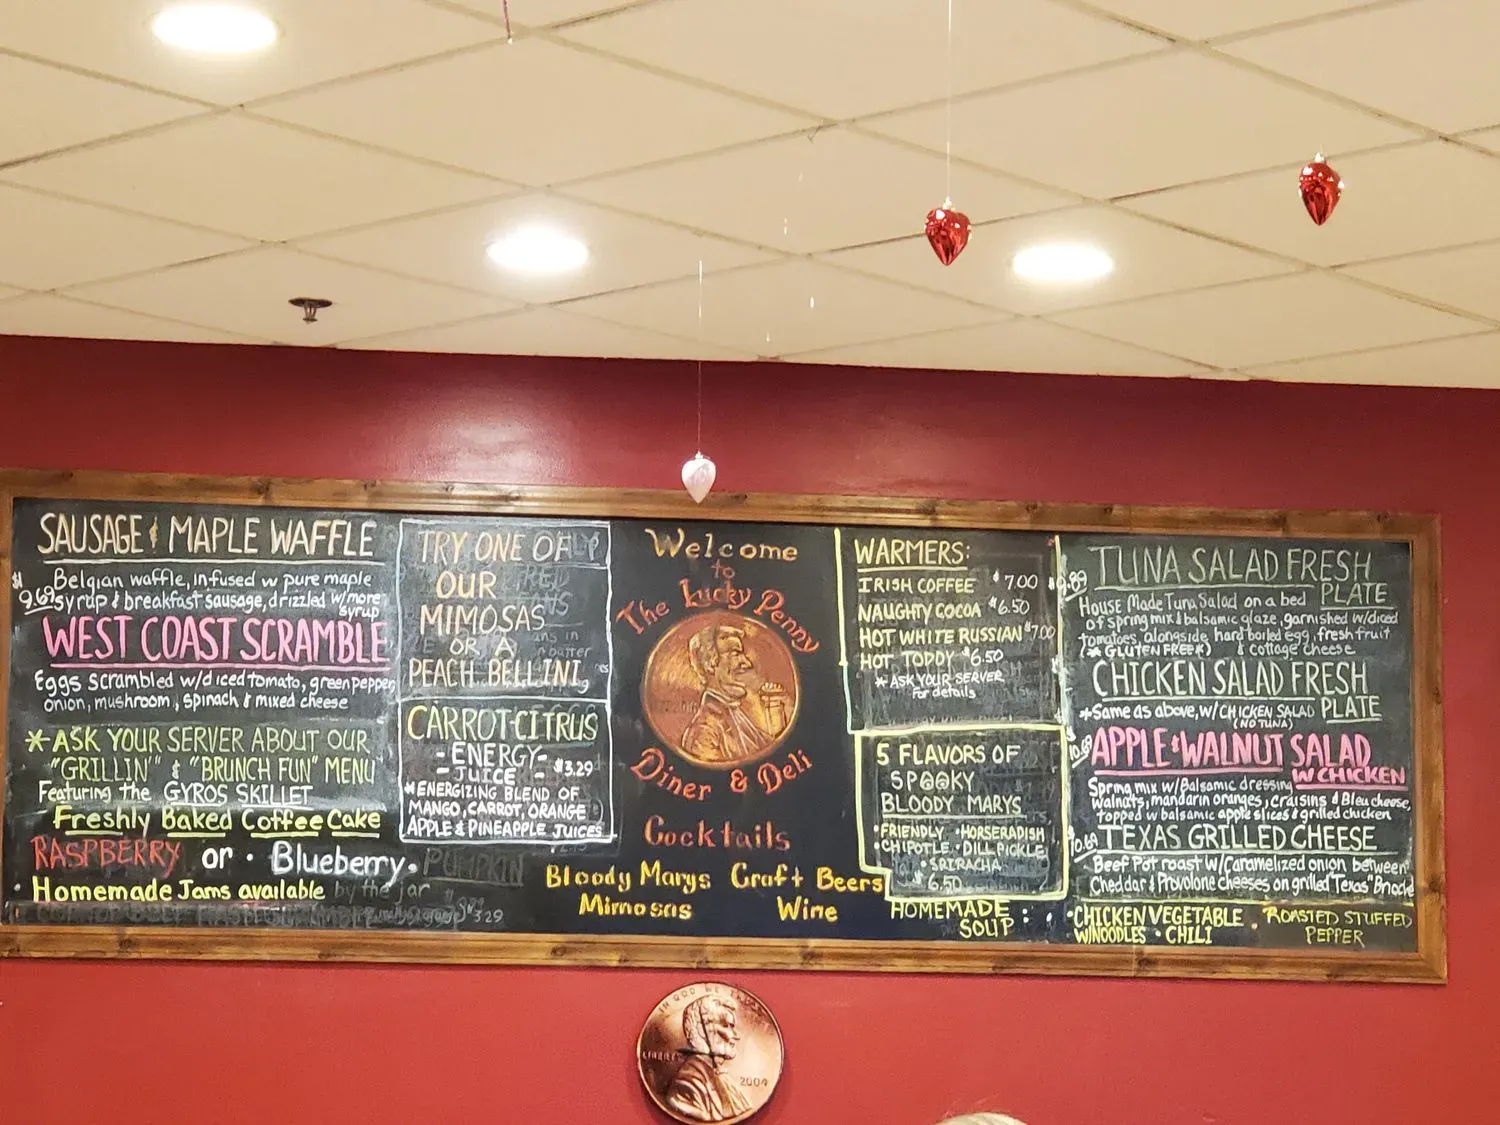 SAUSAGE & MAPLE WAFFLE
Belgian waffle, infused w pure maple
$9.69 syrup & breakfast sausage, drizzled w/more
syrup
WEST COAST SCRAMBLE
Eggs scrambled w/diced tomato, green pepper,
onion, mushroom, spinach & mixed cheese
*ASK YOUR SERVER ABOUT OUR
"GRILLIN'" & "BRUNCH FUN" MENU
Featuring the GYROS SKILLET
Freshly Baked Coffee Cake
RASPBERRY or • Blueberry •
PUMPKIN
• Homemade Jams available by the jar
$3.29
TRY ONE OF
OUR
MIMOSAS
OR A
PEACH BELLINI
CARROT-CITRUS
- ENERGY -
- JUICE - $3.29
*ENERGIZING BLEND OF
MANGO, CARROT, ORANGE
APPLE & PINEAPPLE JUICES
Welcome
to
The Lucky Penny
Diner & Deli
Cocktails
Bloody Marys Craft Beers
Mimosas Wine
WARMERS:
IRISH COFFEE $7.00
NAUGHTY COCOA $6.50
HOT WHITE RUSSIAN $7.00
HOT TODDY $6.50
*ASK YOUR SERVER
For details
5 FLAVORS OF
SPOOKY
BLOODY MARYS
•FRIENDLY •HORSERADISH
•CHIPOTLE •DILL PICKLE
•SRIRACHA
$6.50
HOMEMADE :
SOUP
TUNA SALAD FRESH
$9.89 PLATE
House Made Tuna Salad on a bed
of spring mix & balsamic glaze, garnished w/diced
tomatoes, alongside hard boiled egg, fresh fruit
(*GLUTEN FREE*) & cottage cheese
CHICKEN SALAD FRESH
*Same as above, w/CHICKEN SALAD PLATE
(NO TUNA)
$10.69 APPLE & WALNUT SALAD
W CHICKEN
Spring mix w/Balsamic dressing
walnuts, mandarin oranges, craisins & Bleu cheese,
topped w balsamic apple slices & grilled chicken
$10.69 TEXAS GRILLED CHEESE
Beef Pot roast w/Caramelized onion between
Cheddar & Provolone cheeses on grilled Texas Brioche
•CHICKEN VEGETABLE • ROASTED STUFFED
W/NOODLES •CHILI PEPPER
IN GOD WE TRUST
LIBERTY
2004